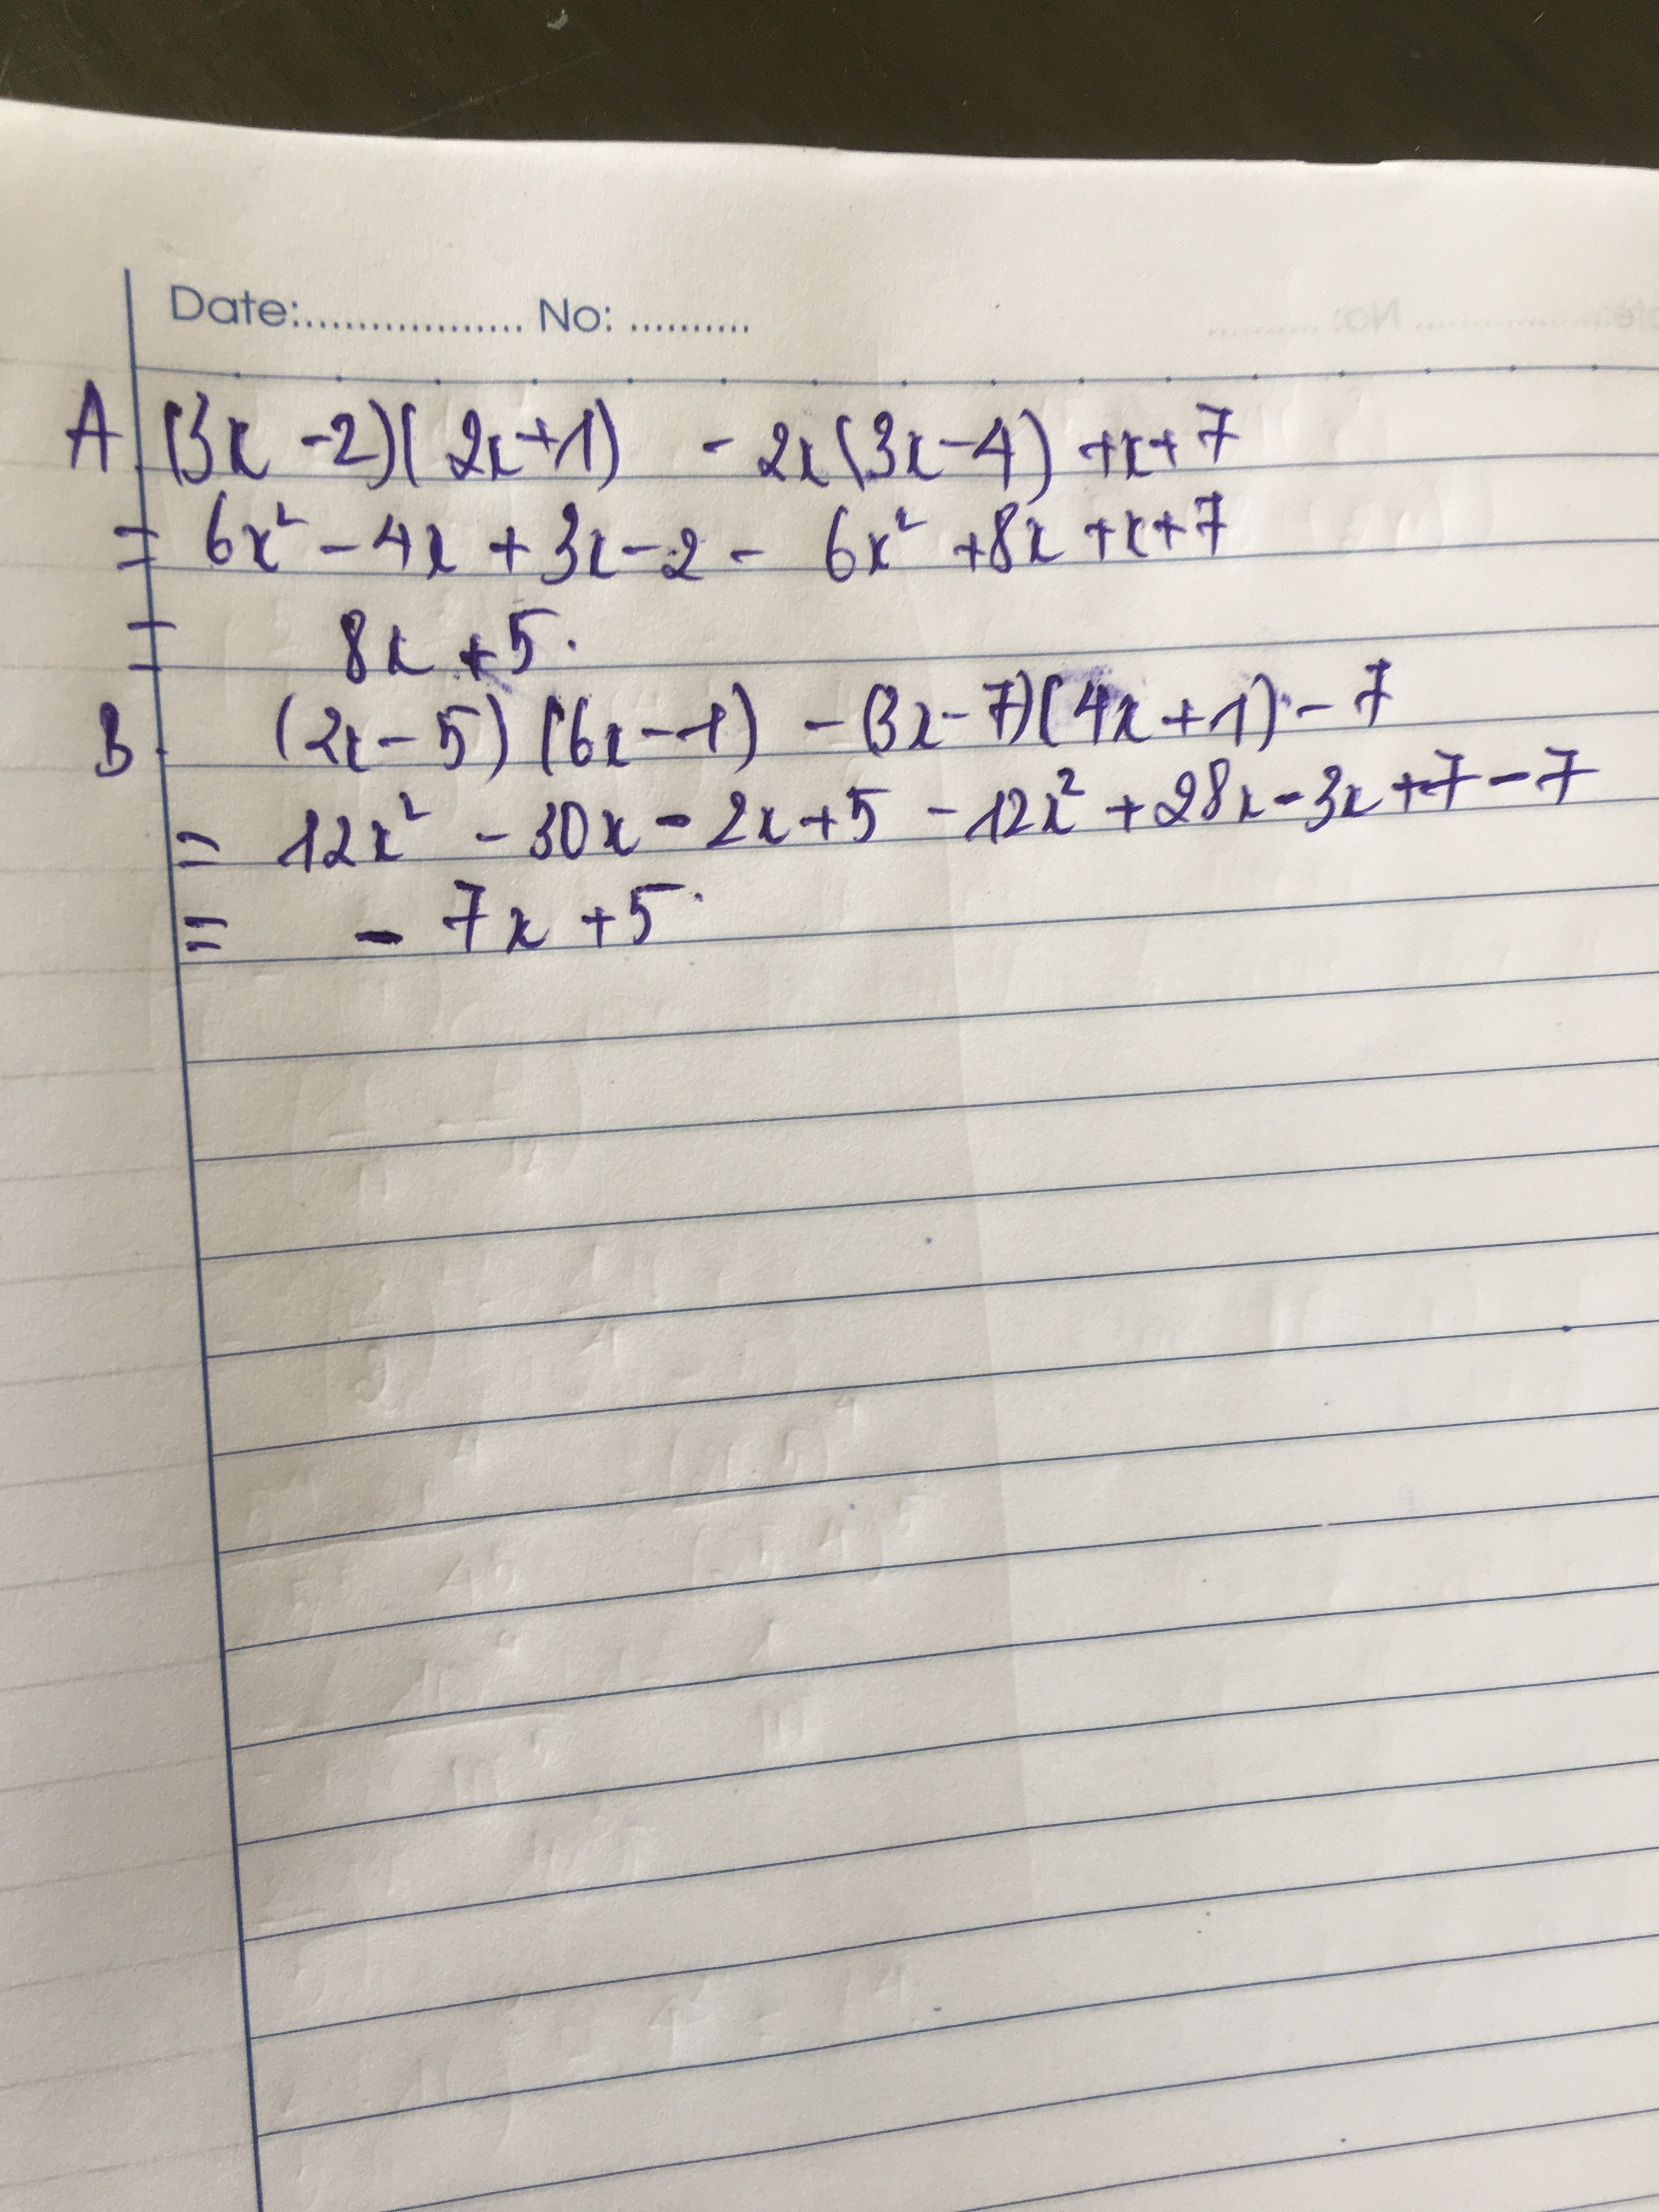 Date:................... No: ..........
A. (3x - 2)(2x + 1) - 2x(3x - 4) + x + 7
= 6x² - 4x + 3x - 2 - 6x² + 8x + x + 7
= 8x + 5.
B. (2x - 5)(6x - 1) - (3x - 7)(4x + 1) - 7
= 12x² - 30x - 2x + 5 - 12x² + 28x - 3x + 7 - 7
= - 7x + 5.